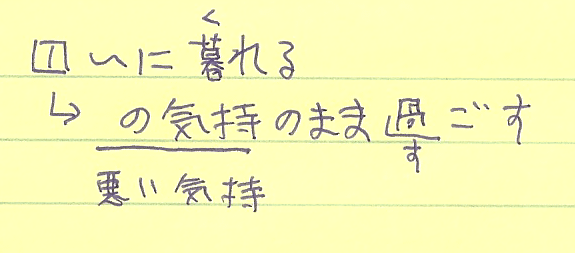 1 〜に暮れる
く
↳ の気持のまま過ごす
す
悪い気持